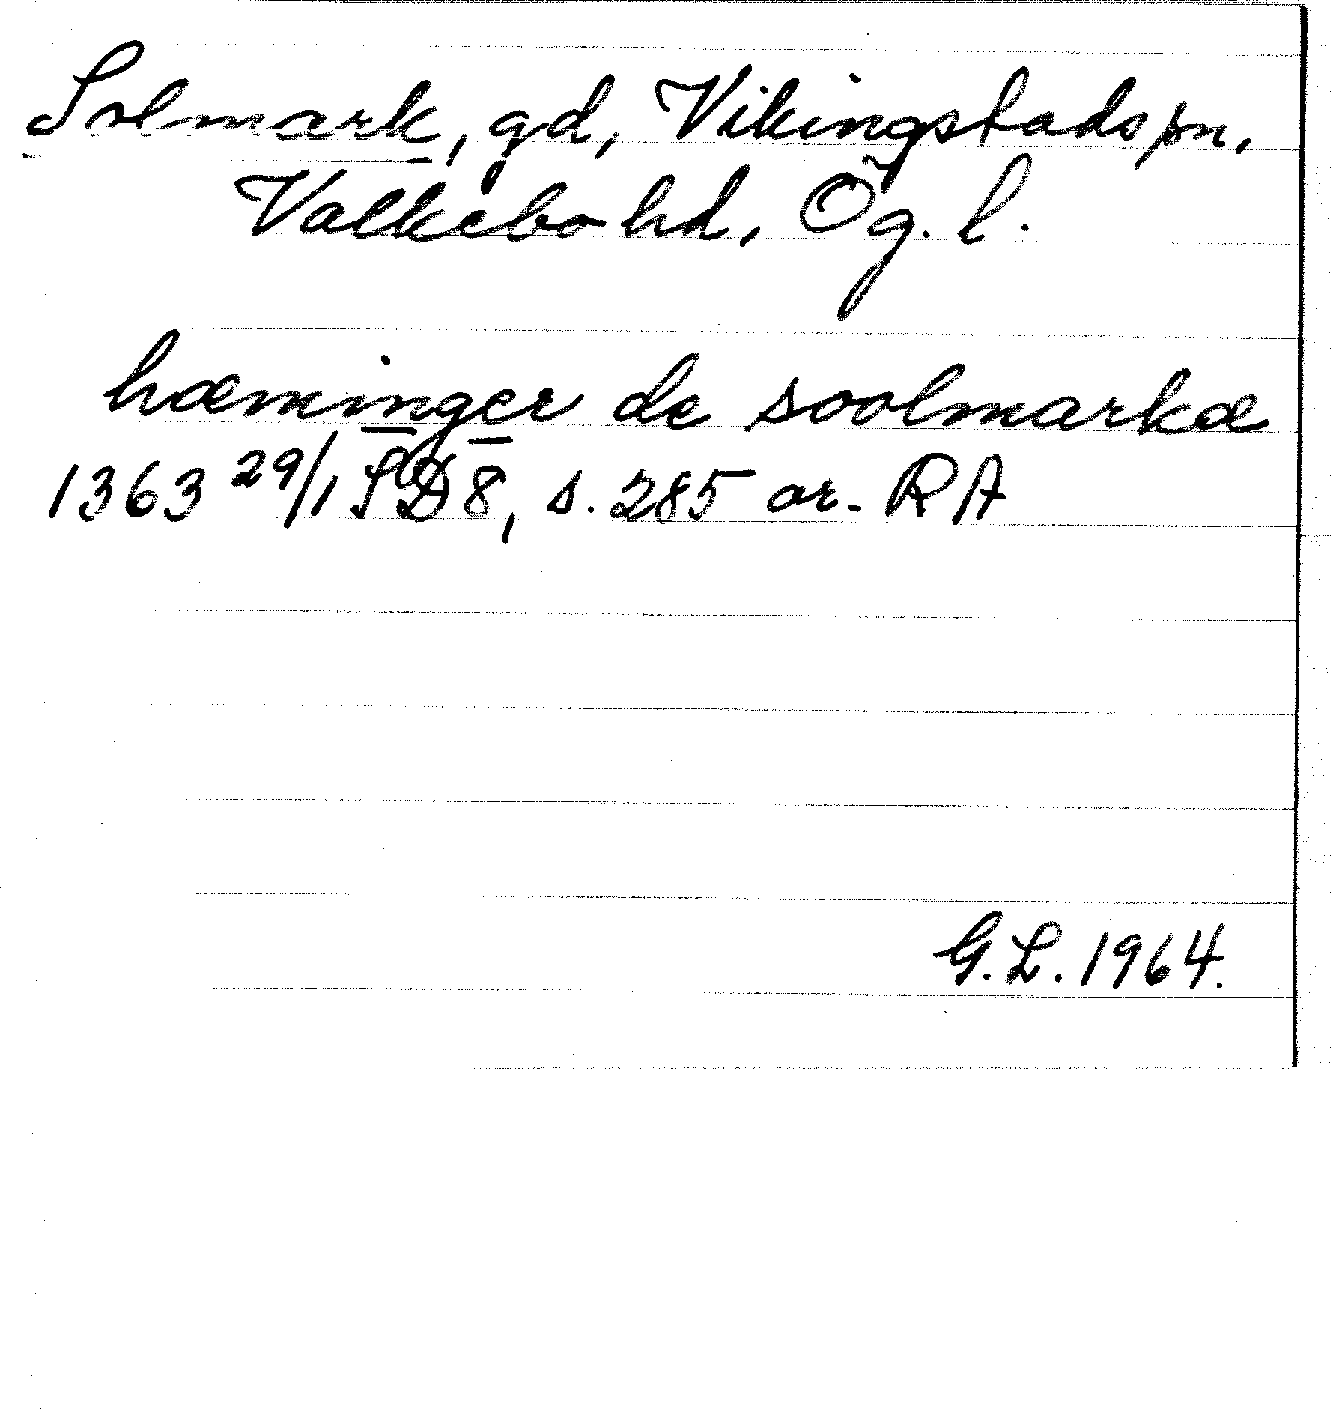 Solmark, gd, Vikingstads pn,
Valkebo hd, Ög. l.
hæminger de soolmarkæ
1363 29/1 SD8, s. 285 or. RA
G.L. 1964.